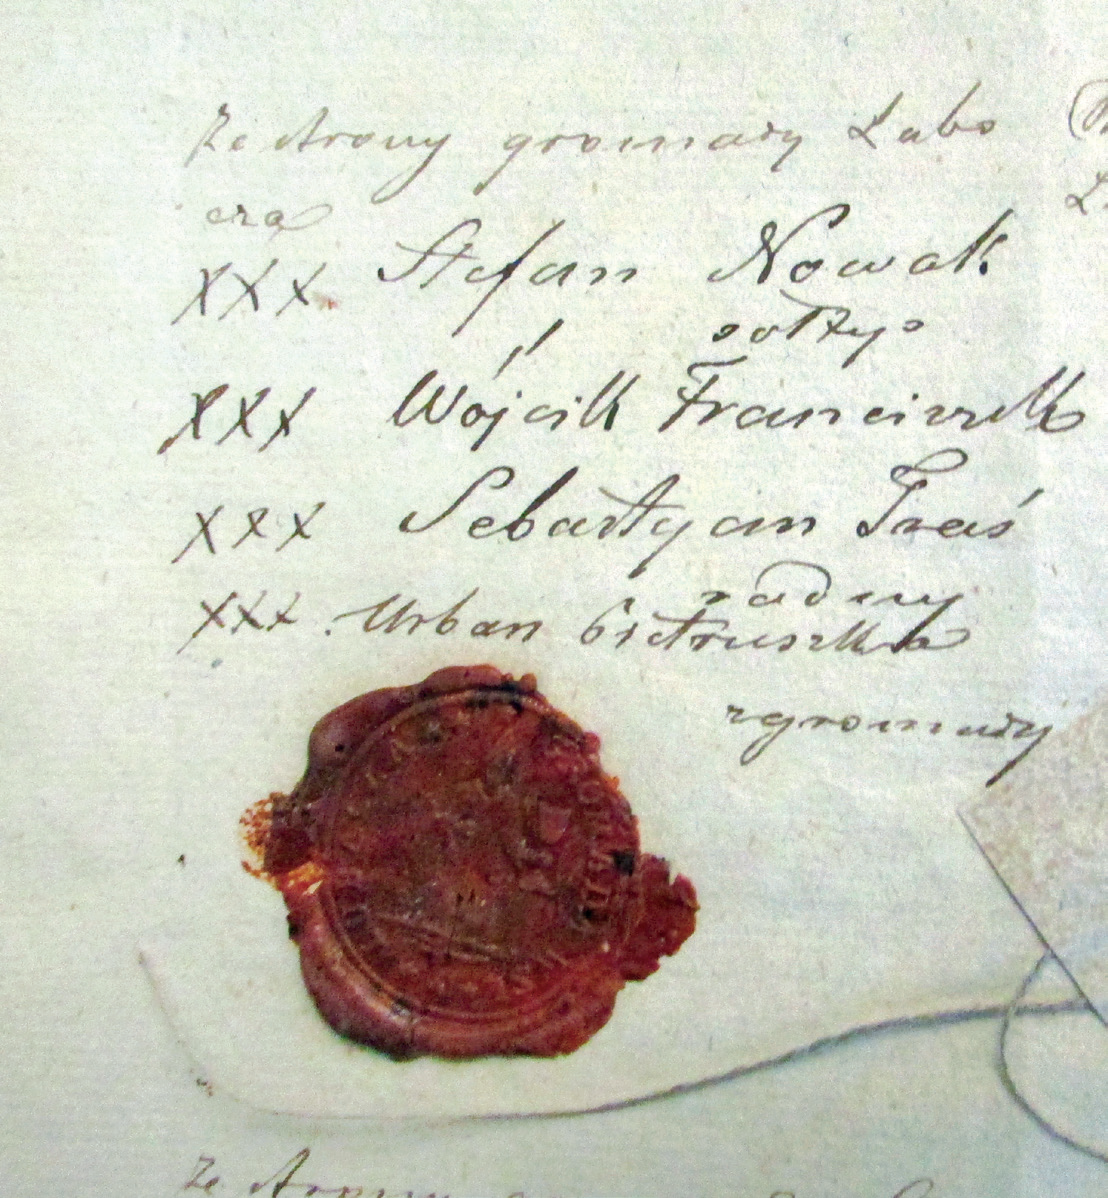 Ze strony gromady Łabo
czą
XXX Stefan Nowak
sołtys
XXX Wójcik Franciszek
XXX Sebastyan Treś
radny
XXX Urban Pietruszka
z gromady
Ze strony